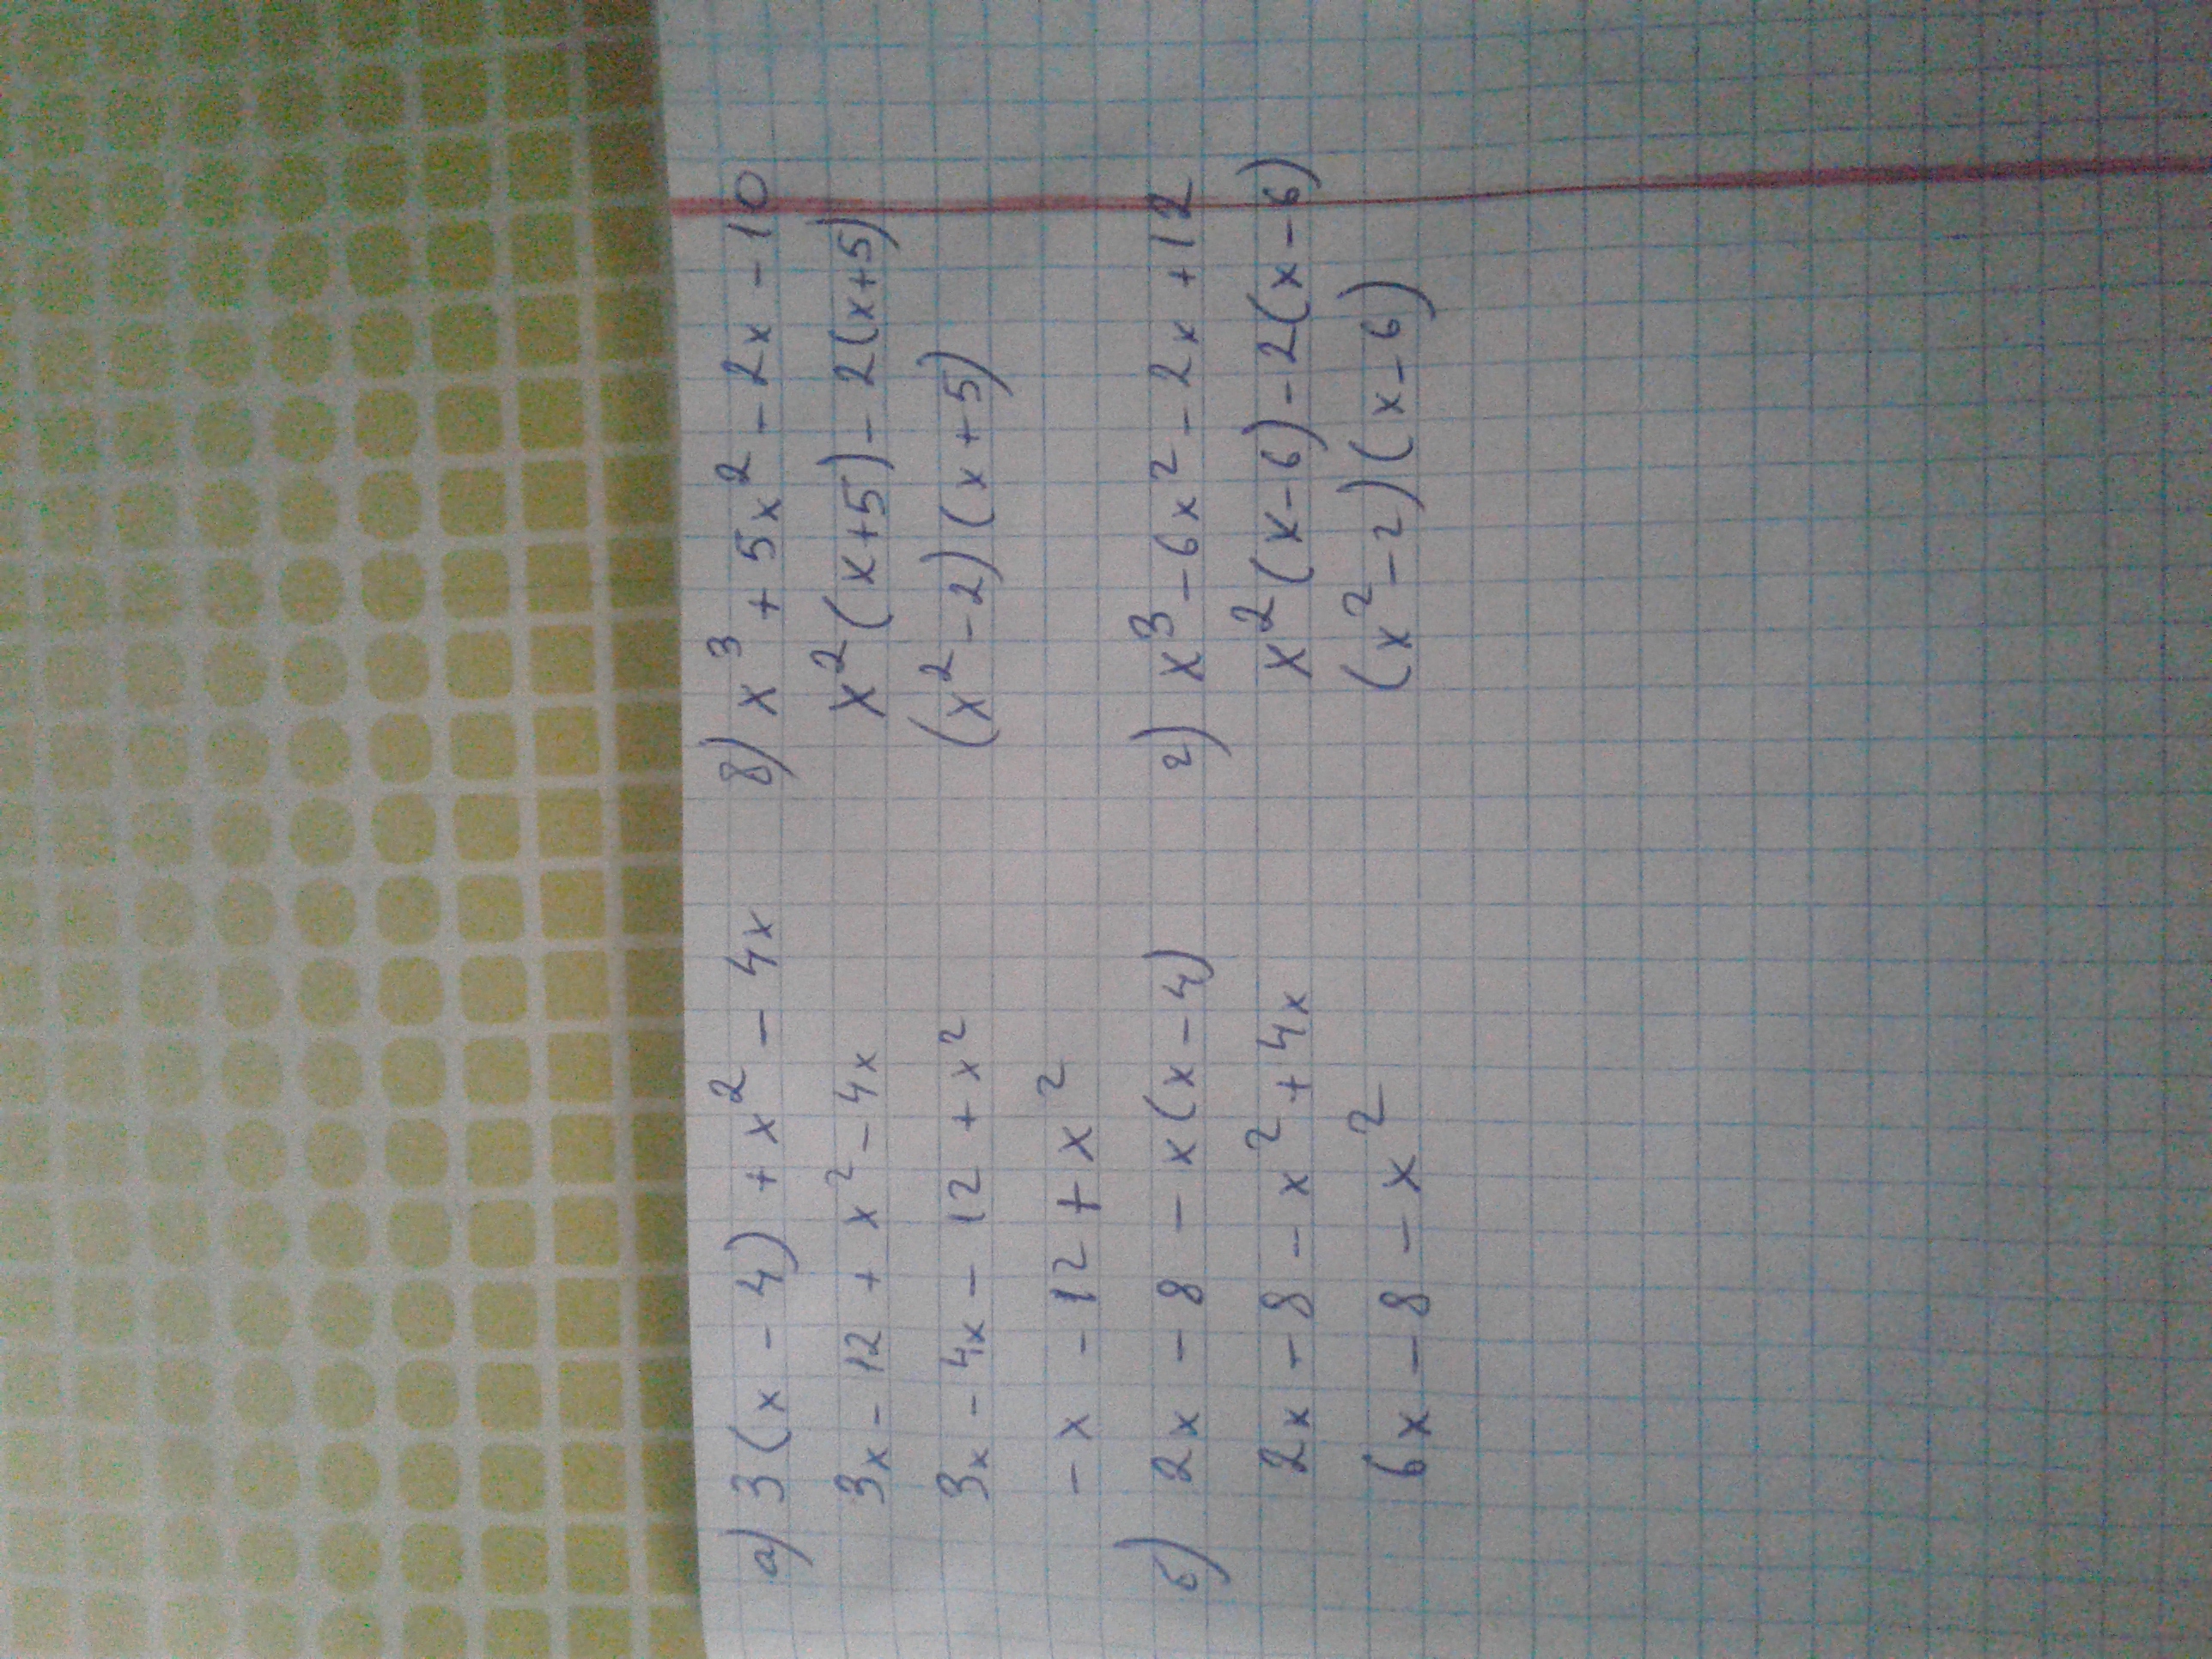 а) 3(x - 4) + x² - 4x
3x - 12 + x² - 4x
3x - 4x - 12 + x²
- x - 12 + x²
б) 2x - 8 - x(x - 4)
2x - 8 - x² + 4x
6x - 8 - x²
в) x³ + 5x² - 2x - 10
x²(x+5) - 2(x+5)
(x² - 2)(x + 5)
г) x³ - 6x² - 2x + 12
x²(x-6) - 2(x-6)
(x² - 2)(x - 6)